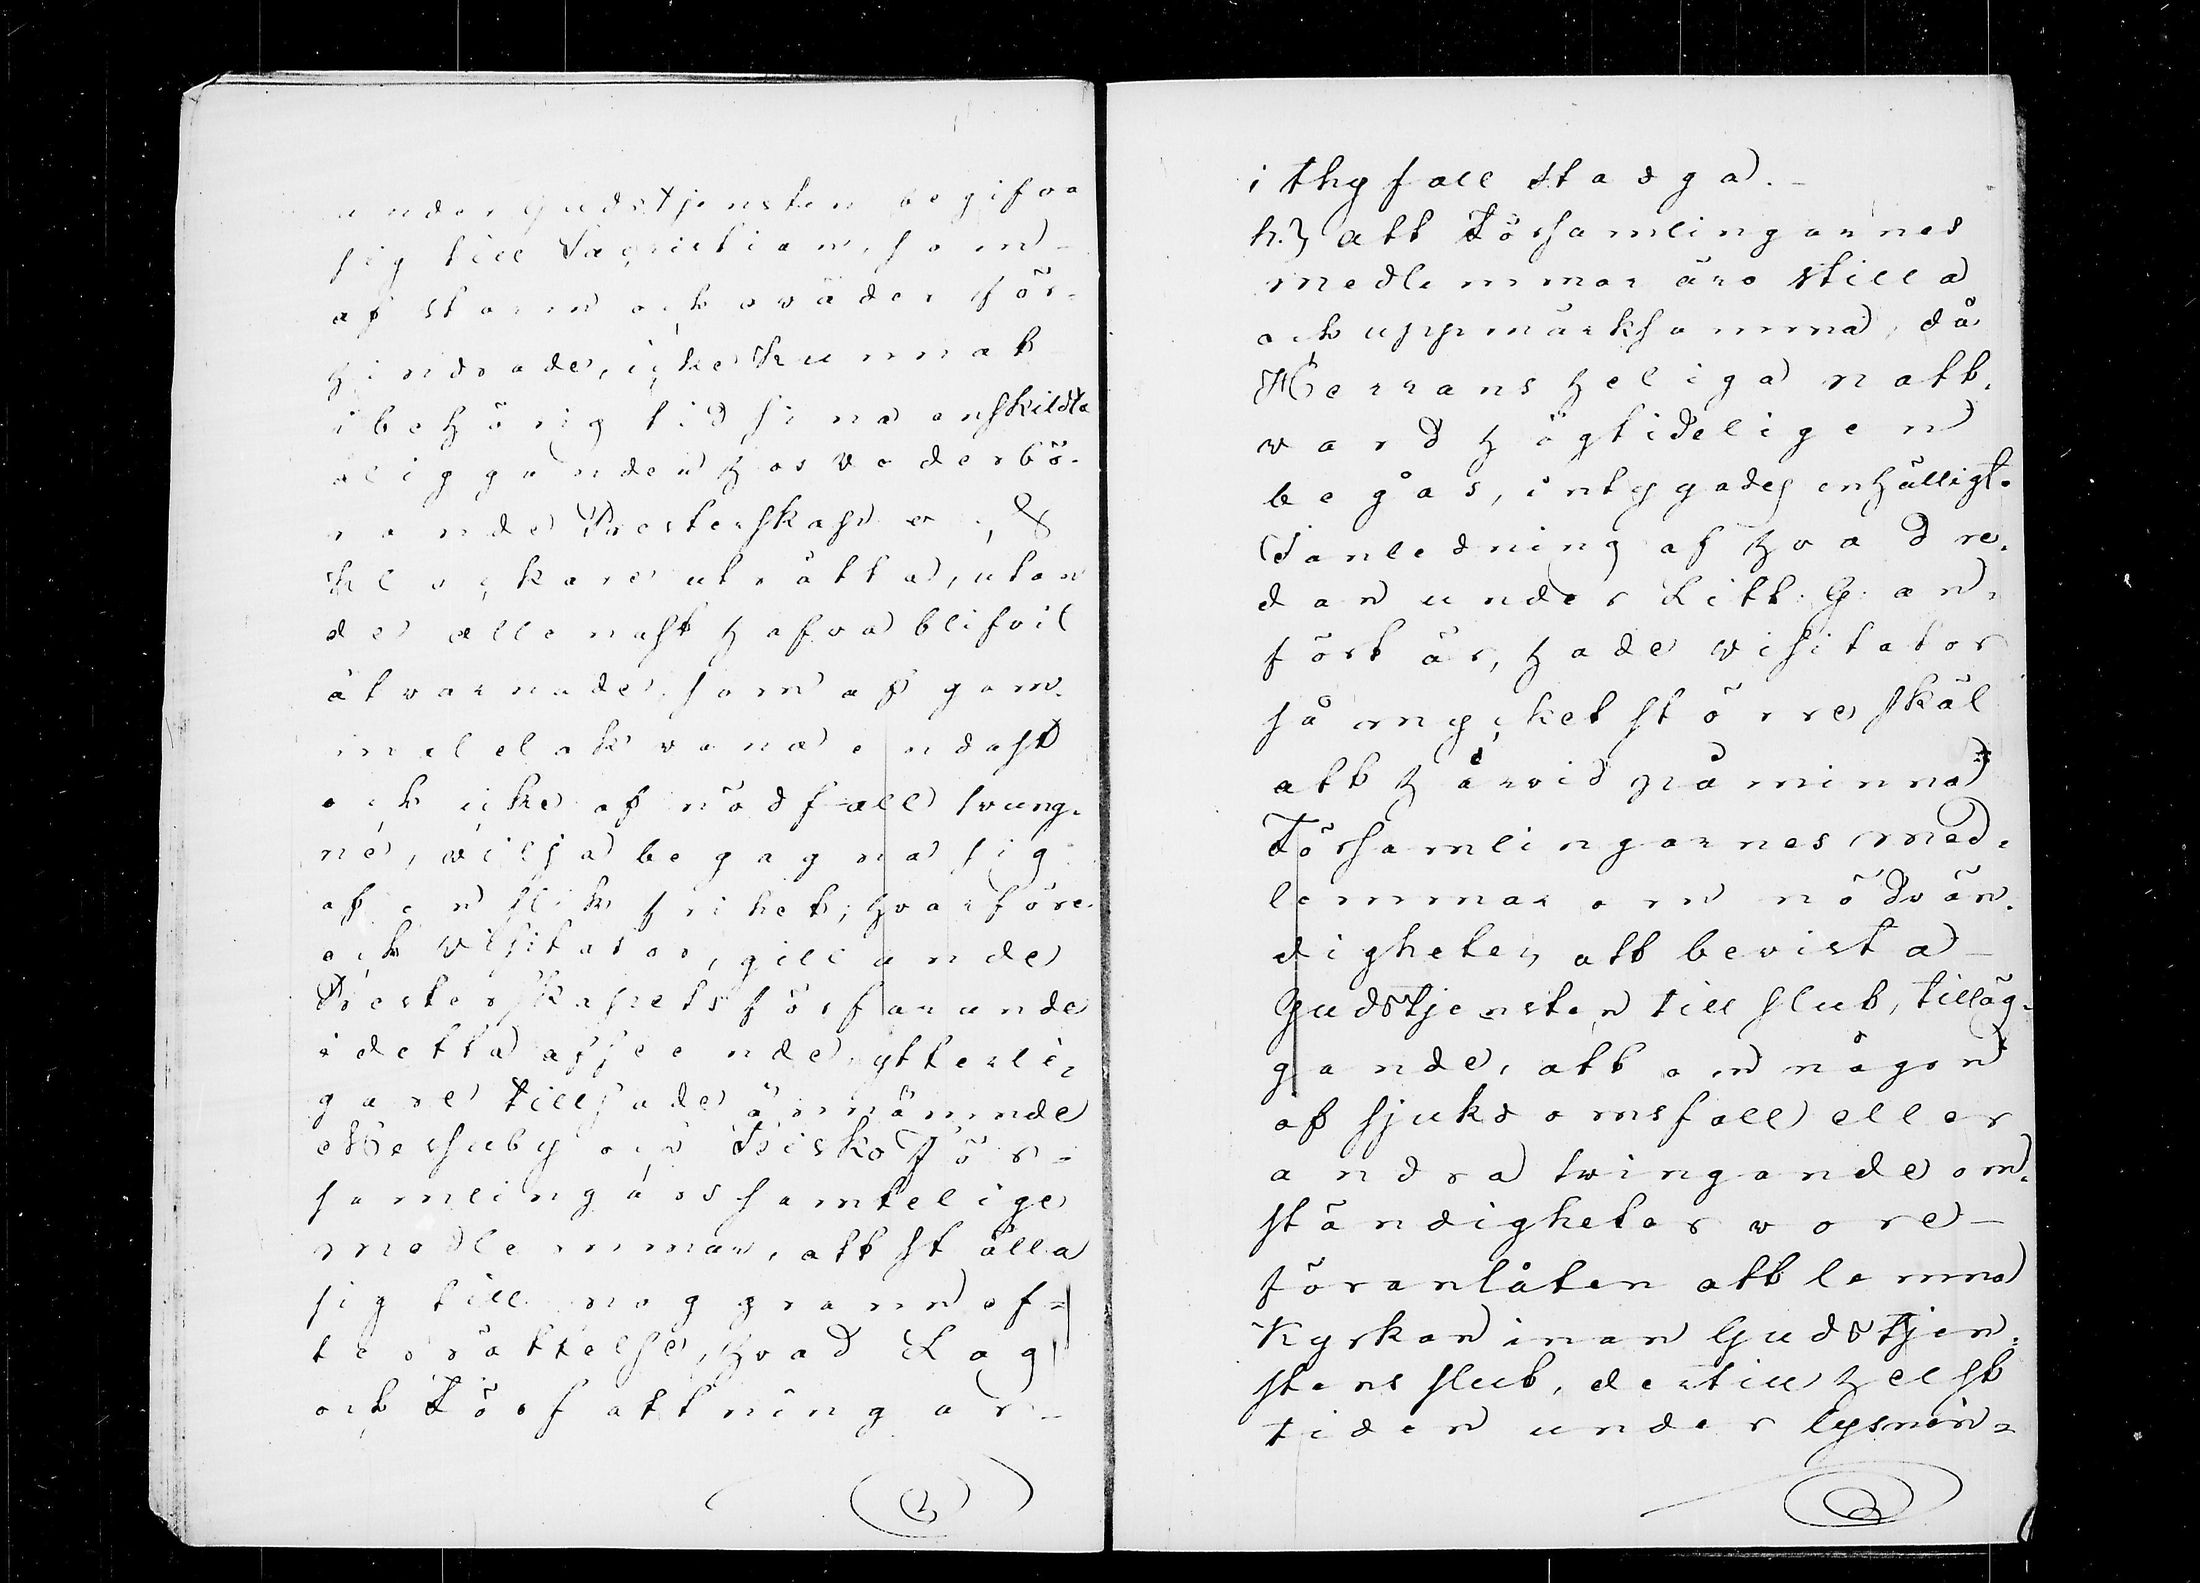 under Gudstjensten begifva
sig till Sacristian, som
af storm och oväder för-
hindrade, icke kunnat
i behörig tid sina enskildta
åligganden hos vederbö-
rande Presterskap &
klockare uträtta, utan
de allenast hafva blifvit
åtvarnade, som af gam-
mal elak vana endast
och icke af nödfall tvung-
ne, vilja begagna sig
af en slik frihet; hvarföre
och Visitator, gillande
Presterskapets förfarande
i detta afseende, ytterli-
gare tillsade ännämnde
Messuby och Teisko För-
samlingars samtelige
medlemmar, att ställa
sig till noggrann ef-
terrättelse, hvad Lag
och Författningar
i thy fall stadga.-
h.) att Församlingarnes
medlemmar äro stilla
och uppmärksamma, då
Herrans heliga natt-
vard högtideligen
begås, intygades enhälligt.
I anledning af hvad re-
dan under Litt. G. an-
fört är, hade Visitator
så mycket större skäl
att härvid påminna
Församlingarnes med-
lemmar om nödvän-
digheten att bevista
Gudstjensten till slut, tilläg-
gande, att om någon
af sjukdomsfall eller
andra tvingande om-
ständigheter vore
föranlåten att lemna
Kyrkan innan Gudstjen-
stens slut, dertill helst
tiden under lysnin-